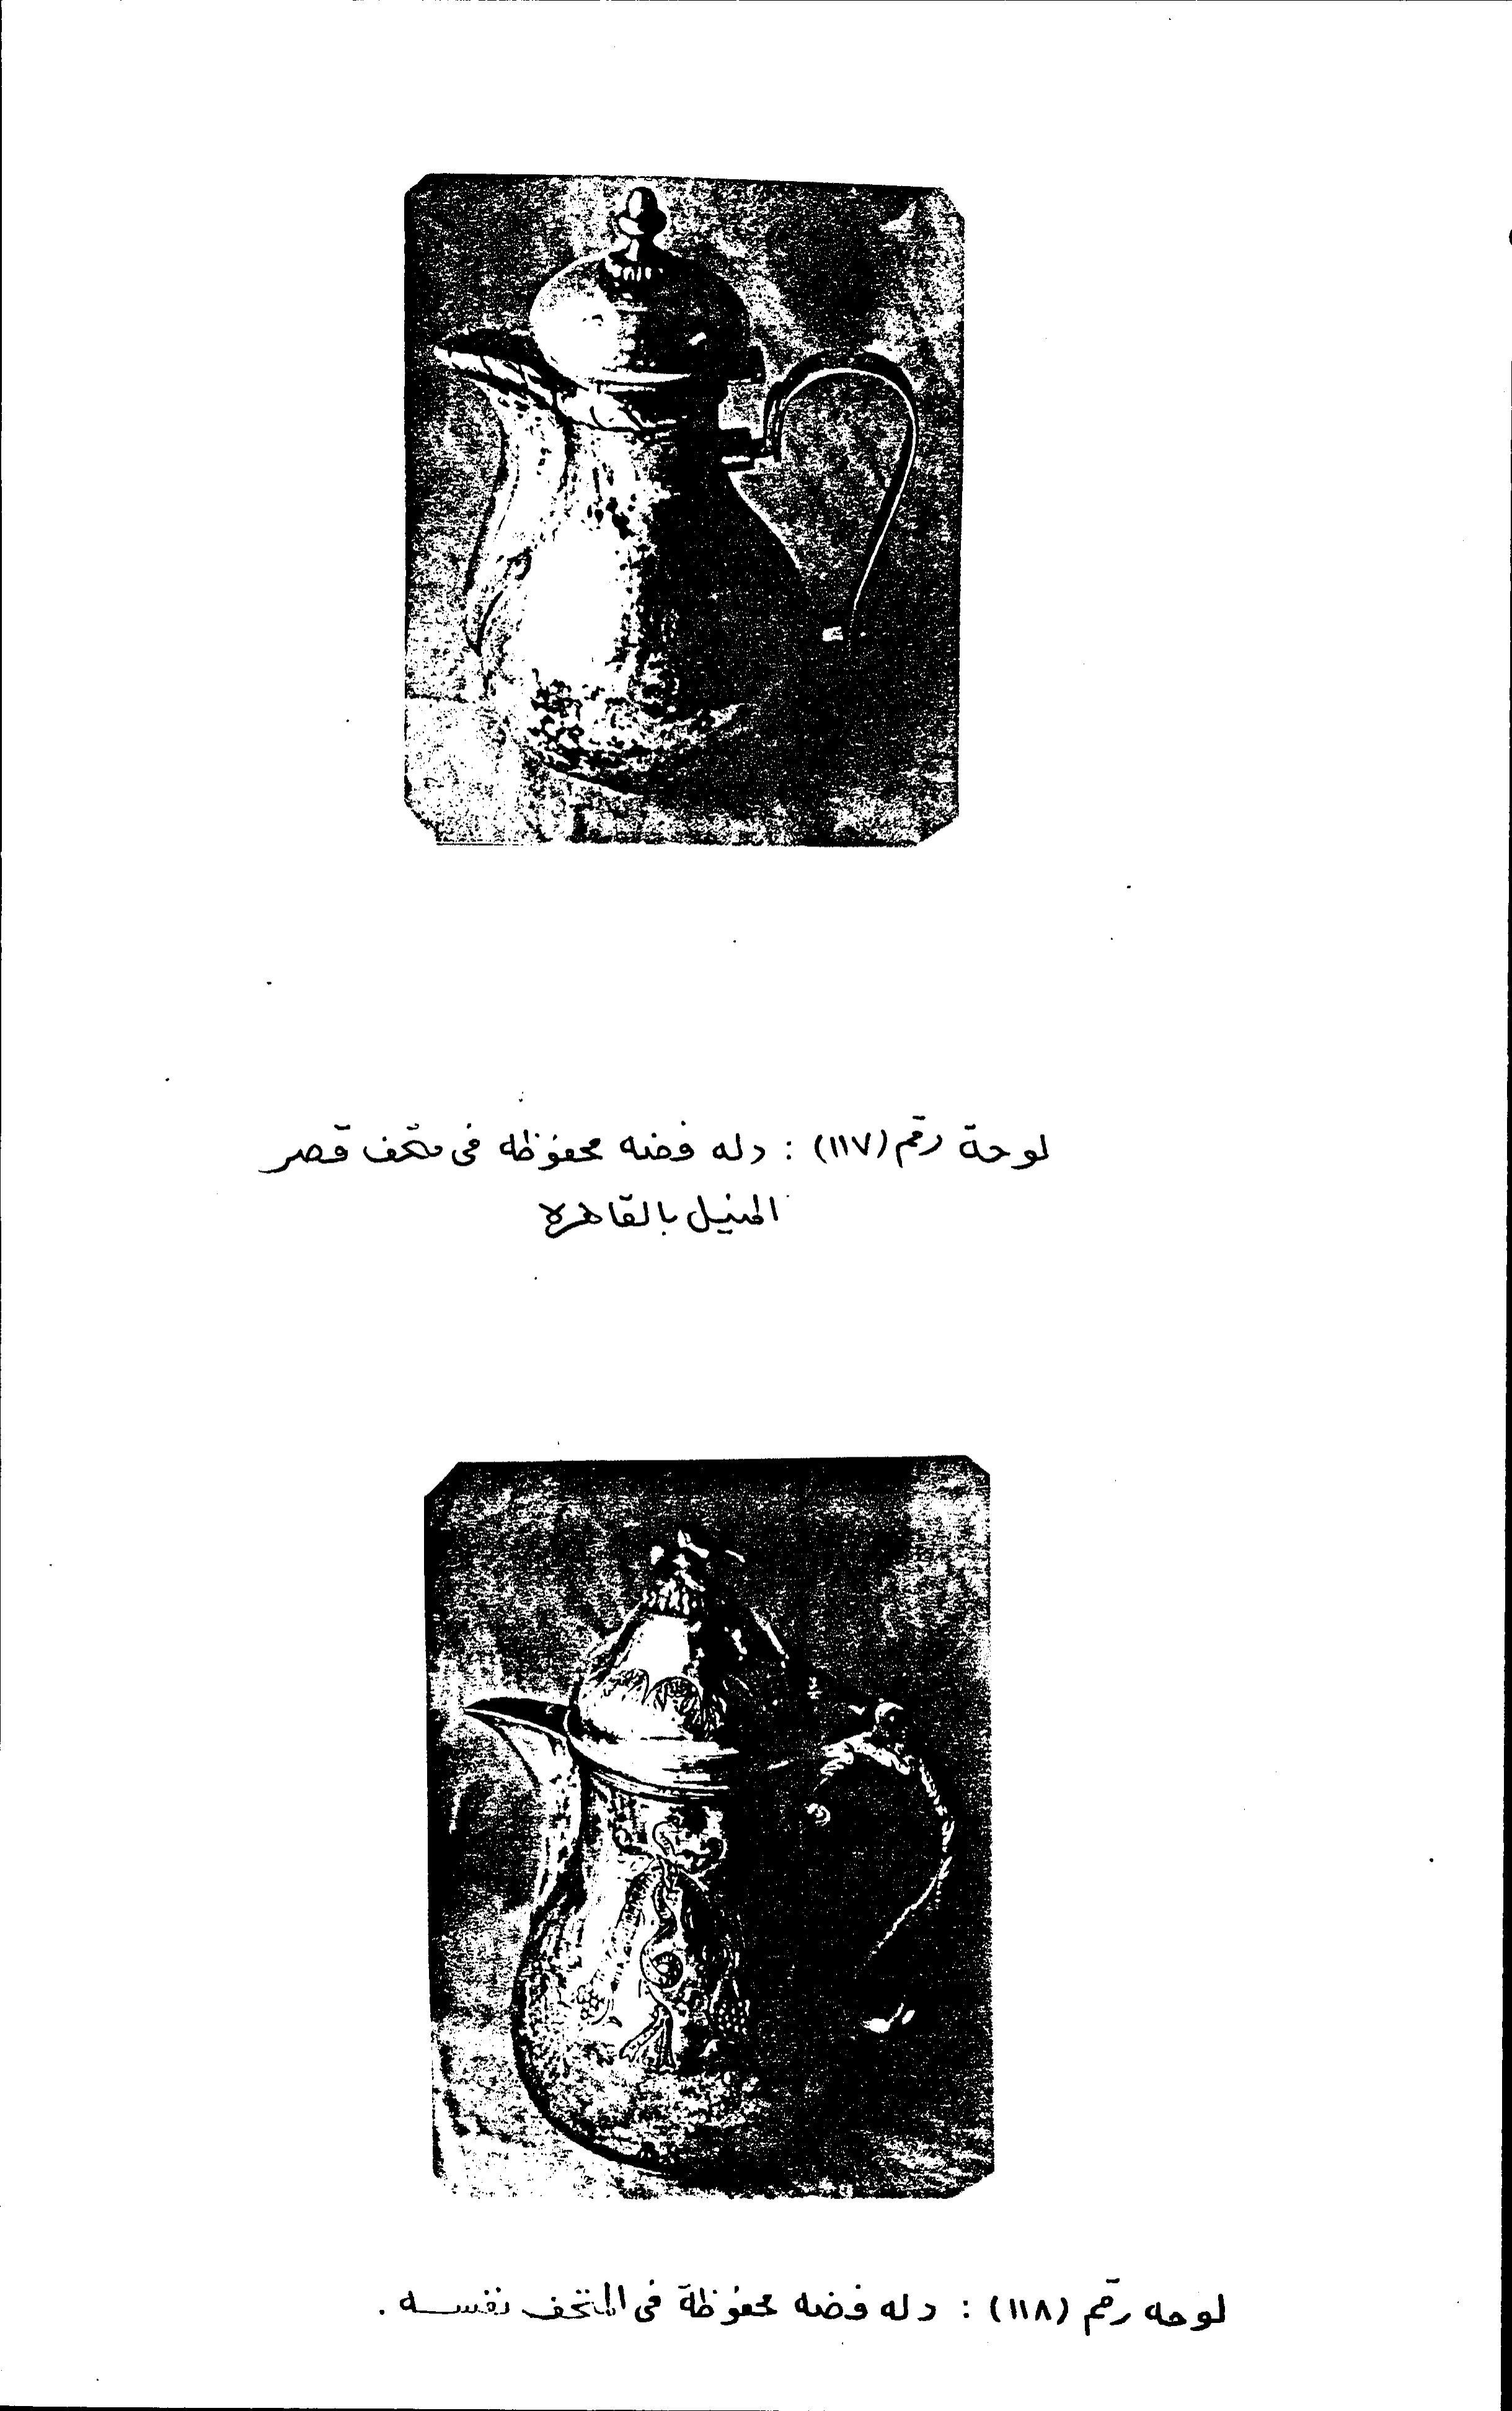 لوحة رقم (١١٧) : دله فضه محفوظه فى متحف قصر
المنيل بالقاهره
لوحه رقم (١١٨) : دله فضه محفوظة فى المتحف نفسه .